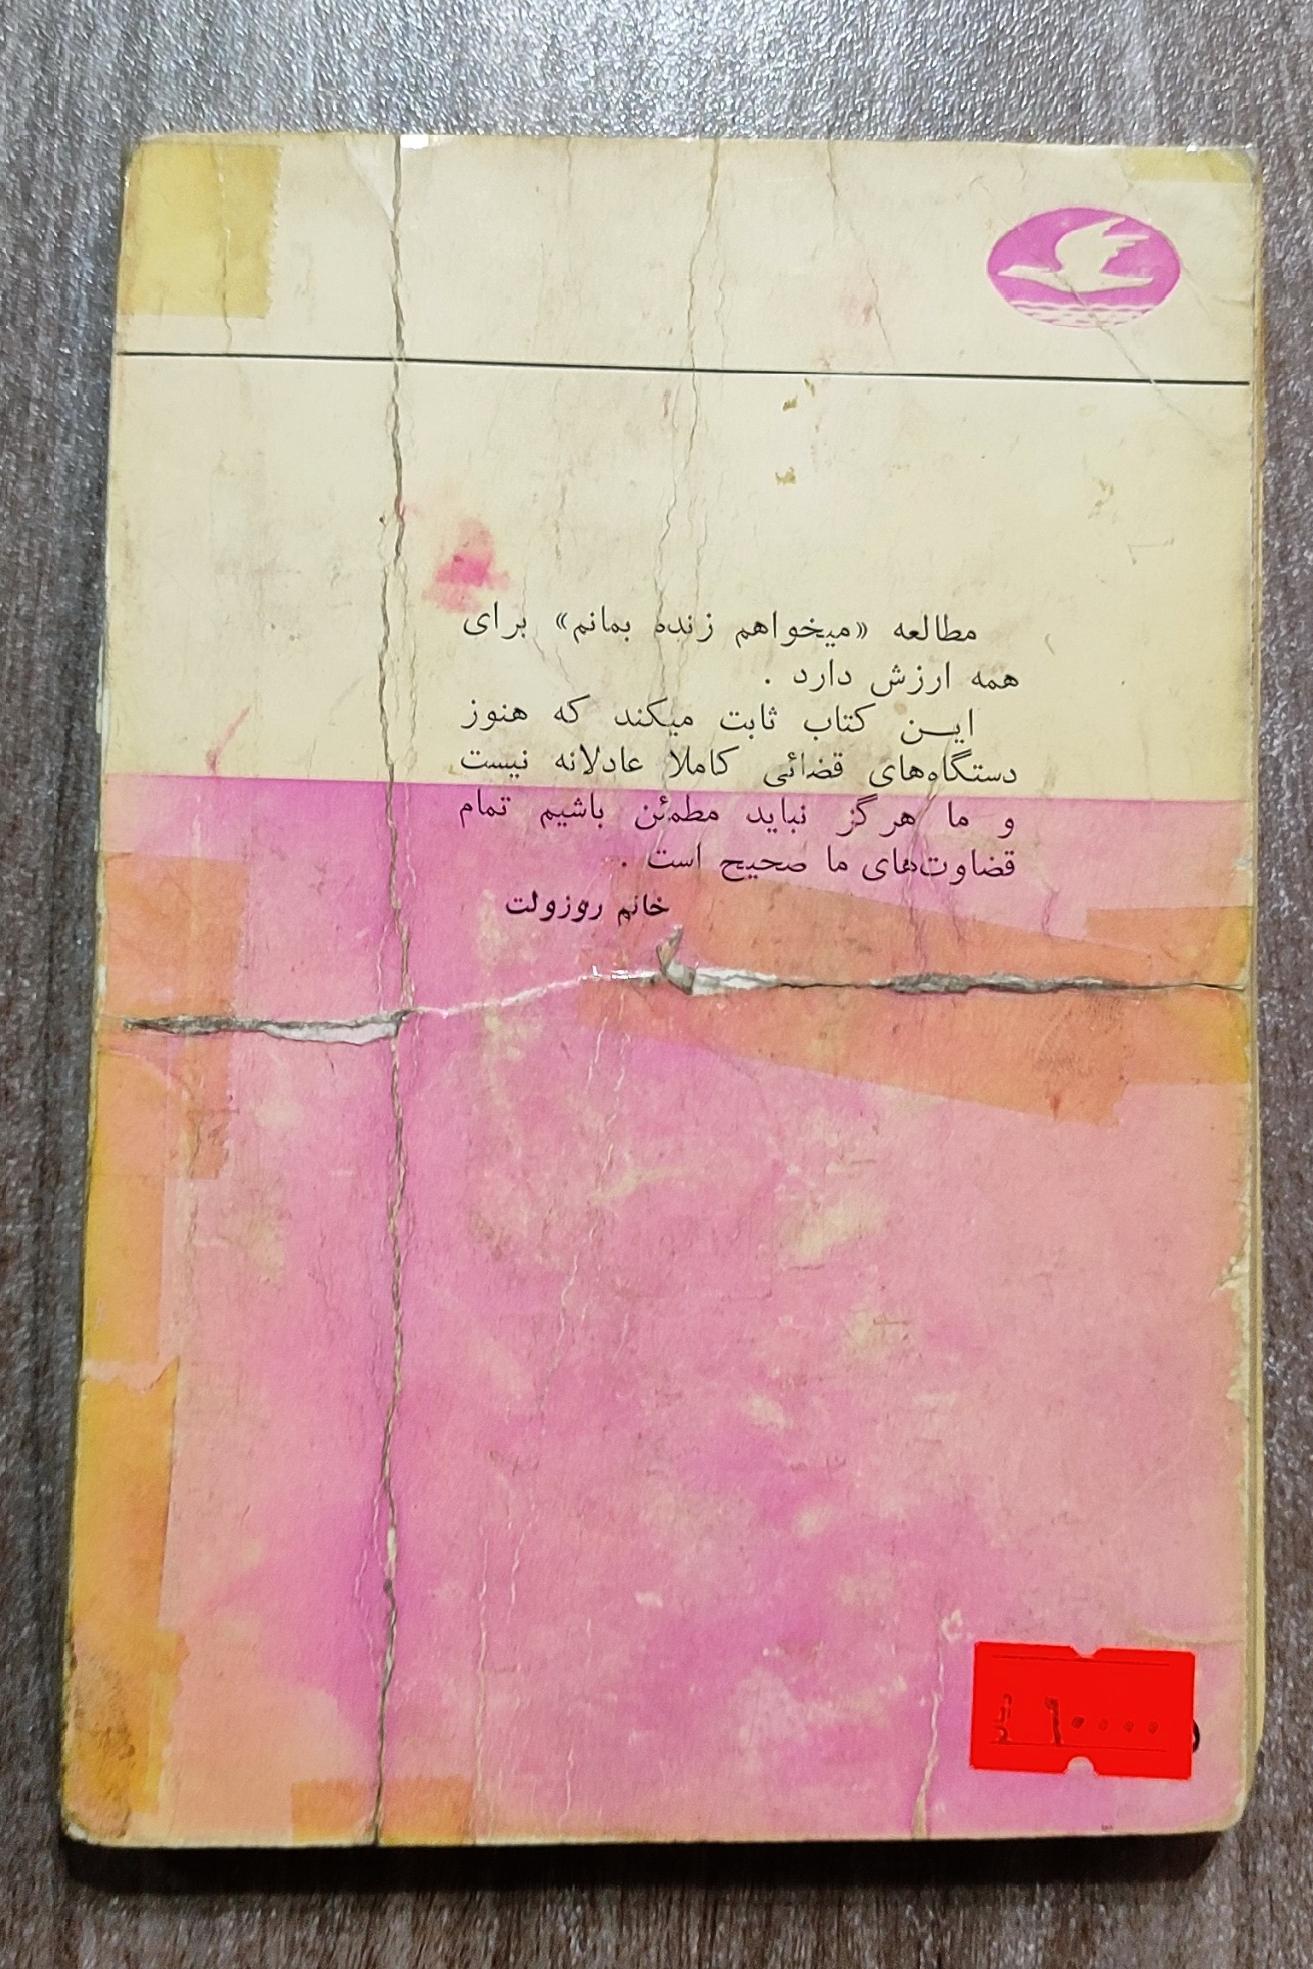 مطالعه «میخواهم زنده بمانم» برای
همه ارزش دارد .
ایـن کتاب ثابت میکند که هنوز
دستگاه‌های قضائی کاملا عادلانه نیست
و ما هرگز نباید مطمئن باشیم تمام
قضاوت‌های ما صحیح است .
خانم روزولت
ریال